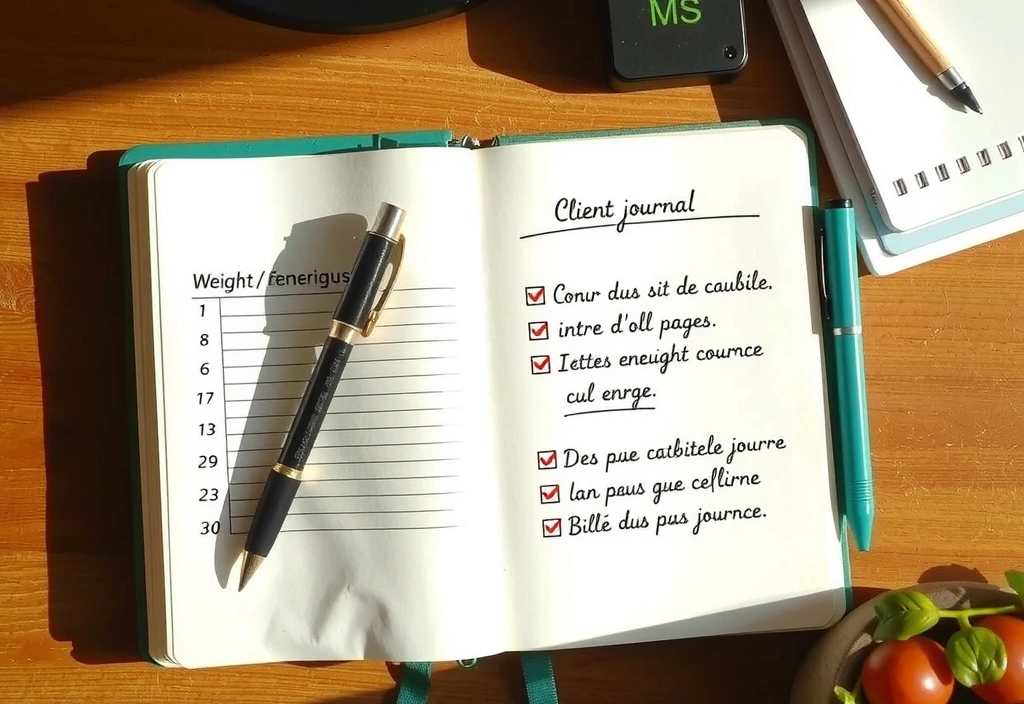 MS
Weight / fenerigus
1
8
6
17
13
29
23
30
Client journal
Conr dus sit de caubile.
intre d'oll pages.
Icttes eneuight cournce
cul enrge.
Des pue catbitele jourre
lan paus gue cellirne
Billé dus pus journce.